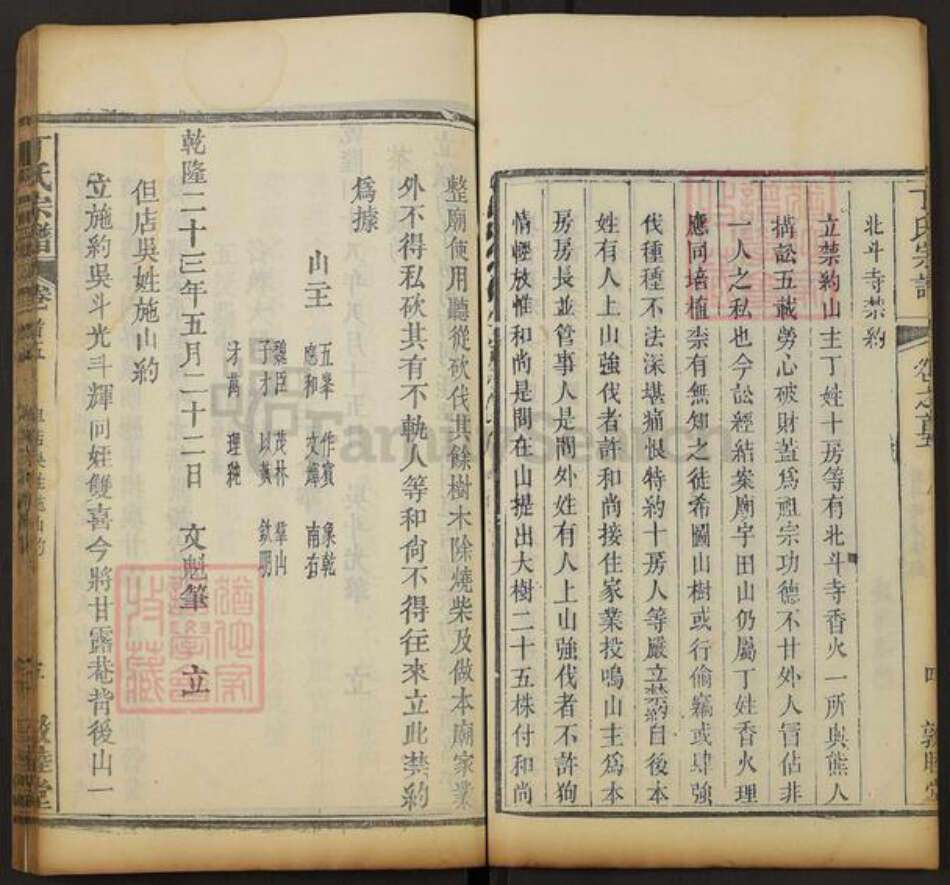 丁氏宗譜
北斗寺禁約
立禁約山主丁姓十房等有北斗寺香火一所與熊人
搆訟五載勞心破財蓋爲祖宗功德不甘外人冒佔非
一人之私也今訟經結案廟宇田山仍屬丁姓香火理
應同培植祟有無知之徒希圖山樹或行偷竊或肆強
伐種種不法深堪痛恨特約十房人等嚴立禁約自後本
姓有人上山強伐者許和尚接住家業投鳴山主爲本
房房長並管事人是問外姓有人上山強伐者不許狥
情輕放惟和尚是問在山提出大樹二十五株付和尚
整廟使用聽從砍伐其餘樹木除燒柴及做本廟家業
外不得私砍其有不軌人等和尚不得往來立此禁約
爲據
山主
五峯 作賓 象乾
應和 文煒 南右
魏臣 茂林 華山
子才 以廣 欽明
才萬 理純
乾隆二十三年五月二十二日 文魁筆 立
但店吳姓施山約
立施約吳斗光斗輝同姪雙喜今將甘露菴背後山一
丁氏宗譜 卷首五 但店吳姓施山約 五 敦睦堂
FamilySearch